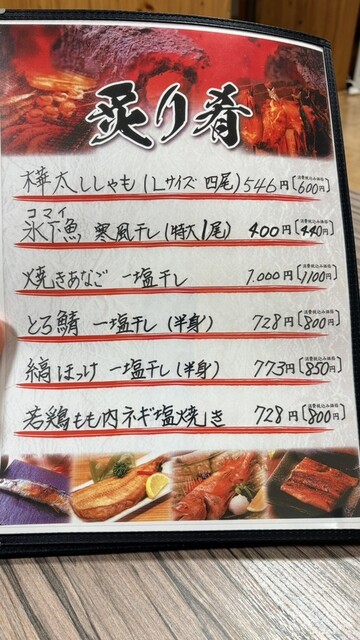 炙り肴
樺太ししゃも(Lサイズ 四尾) 546円 消費税込み価格 [600円]
コマイ
氷下魚 寒風干し(特大1尾) 400円 消費税込み価格 [440円]
焼きあなご 一塩干し 1.000円 消費税込み価格 [1100円]
とろ鯖 一塩干し(半身) 728円 消費税込み価格 [800円]
縞ほっけ 一塩干し(半身) 773円 消費税込み価格 [850円]
若鶏もも肉ネギ塩焼き 728円 消費税込み価格 [800円]